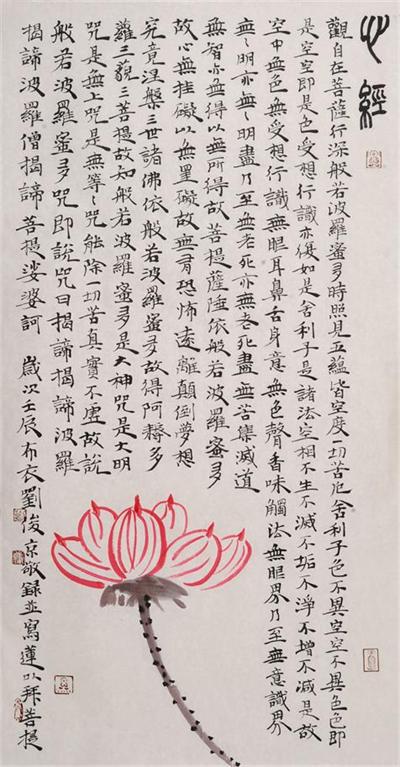 心經
觀自在菩薩行深般若波羅蜜多時照見五蘊皆空度一切苦厄舍利子色不異空空不異色色即
是空空即是色受想行識亦復如是舍利子是諸法空相不生不滅不垢不淨不增不減是故
空中無色無受想行識無眼耳鼻舌身意無色聲香味觸法無眼界乃至無意識界
無〻明亦無〻明盡乃至無老死亦無老死盡無苦集滅道
無智亦無得以無所得故菩提薩埵依般若波羅蜜多
故心無挂礙以無罣礙故無有恐怖遠離顛倒夢想
究竟涅槃三世諸佛依般若波羅蜜多故得阿耨多
羅三藐三菩提故知般若波羅蜜多是大神咒是大明
咒是無上咒是無等〻咒能除一切苦真實不虛故說
般若波羅蜜多咒即說咒曰揭諦揭諦波羅
揭諦波羅僧揭諦菩提娑婆訶 歲次壬辰布衣劉俊京敬錄並寫蓮以拜菩提